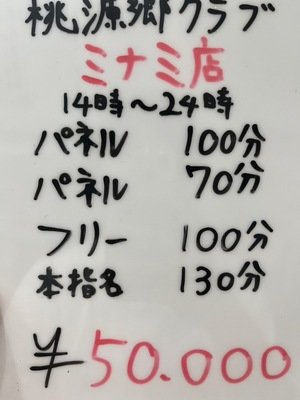 桃源郷クラブ
ミナミ店
14時～24時
パネル 100分
パネル 70分
フリー 100分
本指名 130分
¥50.000